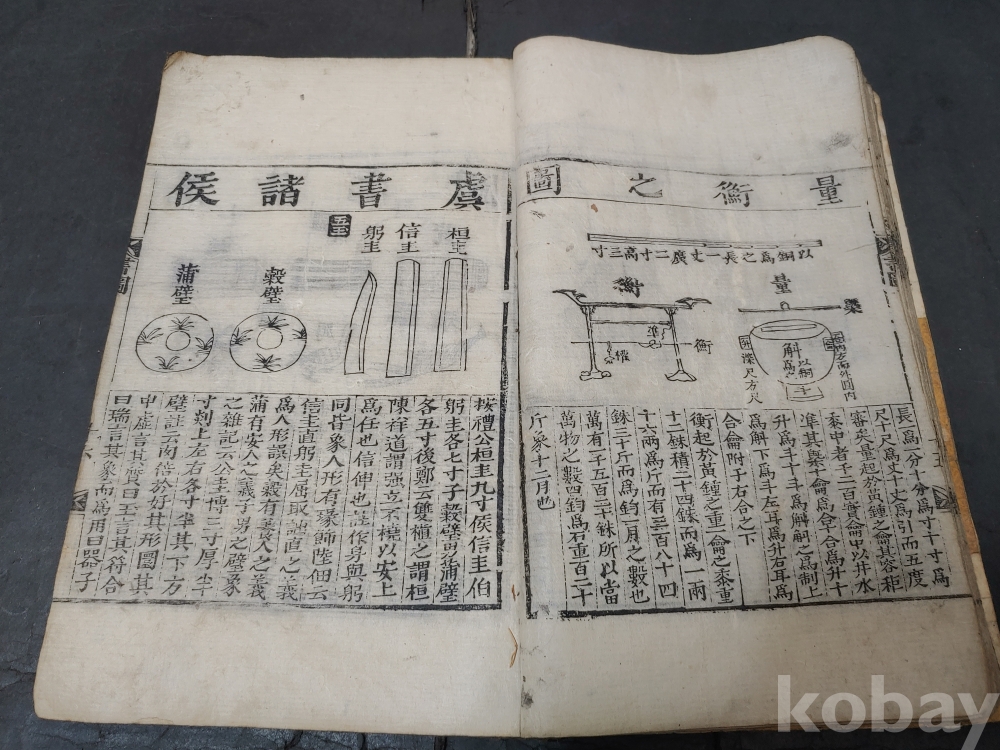 量衡之圖
以銅為之長一丈廣二寸高三寸
量
槩
斛
以銅為之
斗
深尺方尺
衡
衡
準
權
長一為分十分為寸十寸為
尺十尺為丈十丈為引而五度
審矣量起於黃鍾之龠其容秬
黍中者千二百實龠中以井水
準其槩十龠為合十合為升十
升為斗十斗為斛斛之為制上
為斛下為斗左耳為升右耳為
合龠附于右合之下
衡起於黃鍾之重一龠之黍重
十二銖積二十四銖而為一兩
十六兩為斤而有三百八十四
銖三十斤而為鈞一月之數也
萬有一千五百二十銖所以當
萬物之數四鈞為石重百二十
斤象十二月也
虞書諸侯
五玉
桓圭
信圭
躬圭
榖璧
蒲璧
按禮公桓圭九寸侯信圭伯
躬圭各七寸子榖璧男蒲璧
各五寸後鄭云雙植之謂桓
陳祥道謂强立不撓以安上
為任也信伸也註作身與躬
同皆象人形有瑑飾陸佃云
信圭直躬圭屈取詘直之義
為人形誤矣榖有養人之義
蒲有安人之義子男之璧象
之雜記云公圭博三寸厚半
寸剡上左右各寸半其下方
璧註云肉倍於好其形圓其
中虛言其質曰玉言其符合
曰瑞言其象而為用曰器子
書圖
kobay